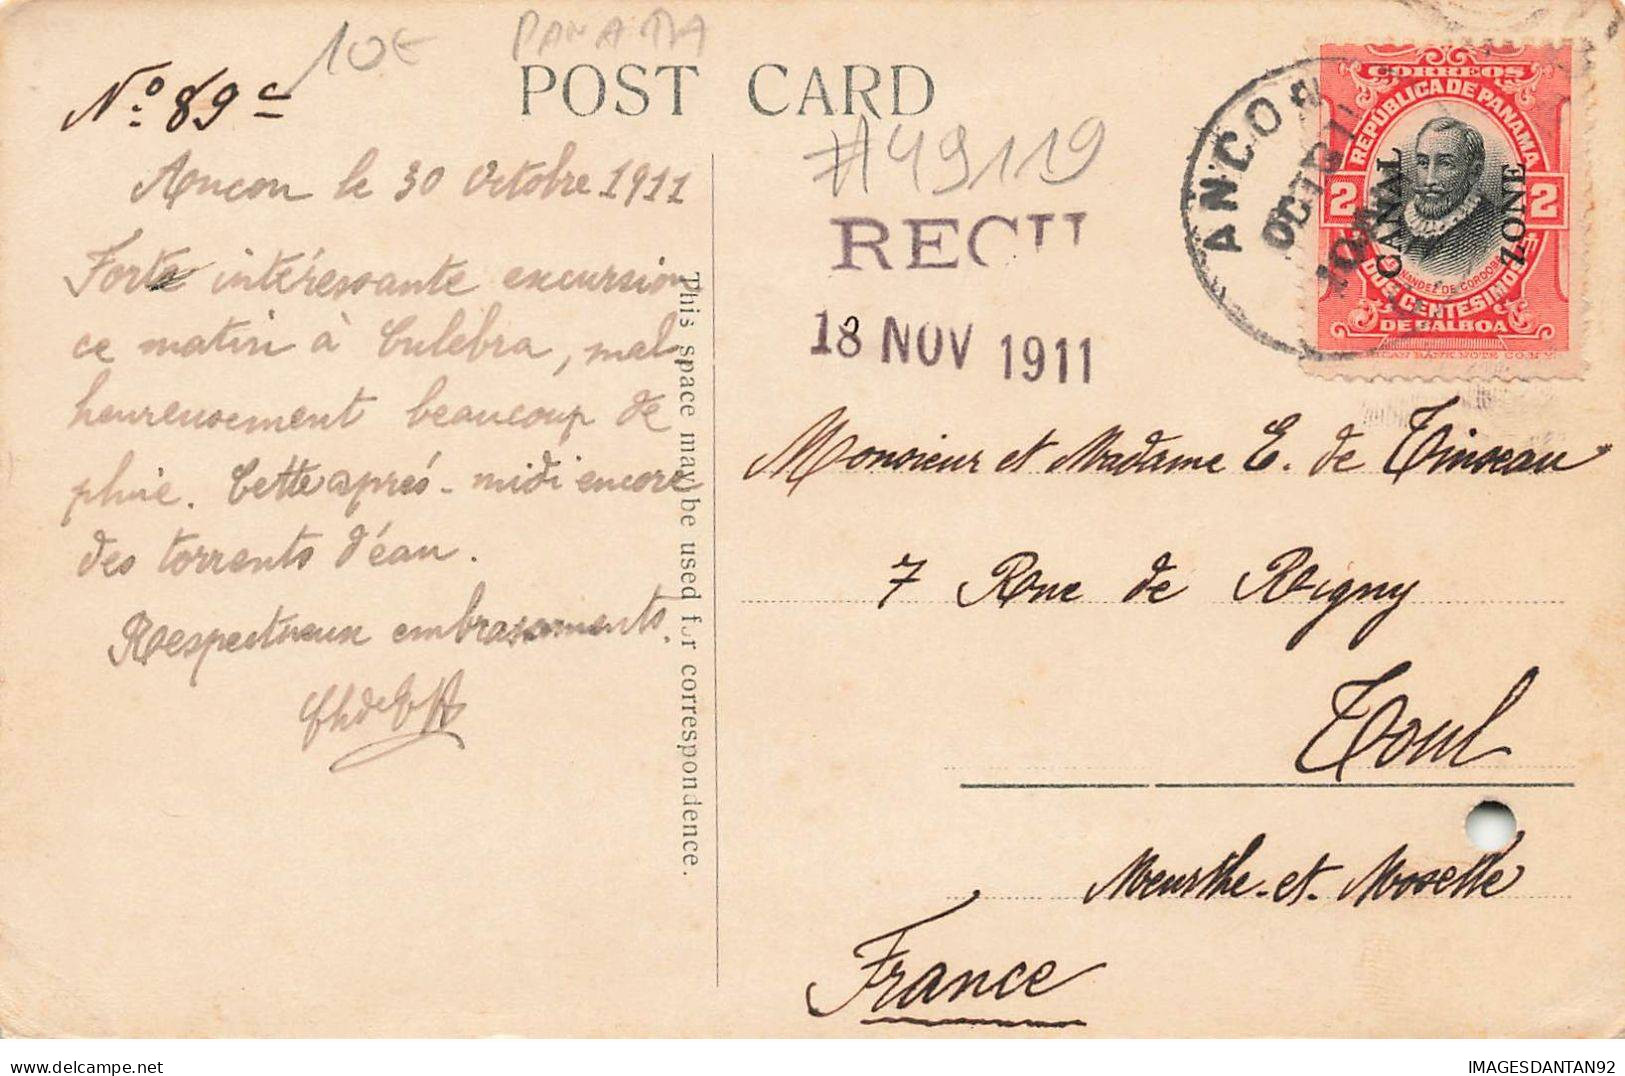 10€ PANAMA
No. 89 c
POST CARD
#49119
Ancon le 30 Octobre 1911
Forte intéressante excursion
ce matin à Culebra, mal
heureusement beaucoup de
pluie. Cette après-midi encore
des torrents d'éau.
Respectueux embrassements.
This space may be used for correspondence.
RECU
18 NOV 1911
ANCON
OCT
CORREOS
REPUBLICA DE PANAMA
2 2
CANAL ZONE
FERNANDEZ DE CORDOBA
DOS CENTESIMOS
DE BALBOA
Monsieur et Madame E. de Tinseau
7 Rue de Rigny
Toul
Meurthe-et-Moselle
France
IMAGESDANTAN92